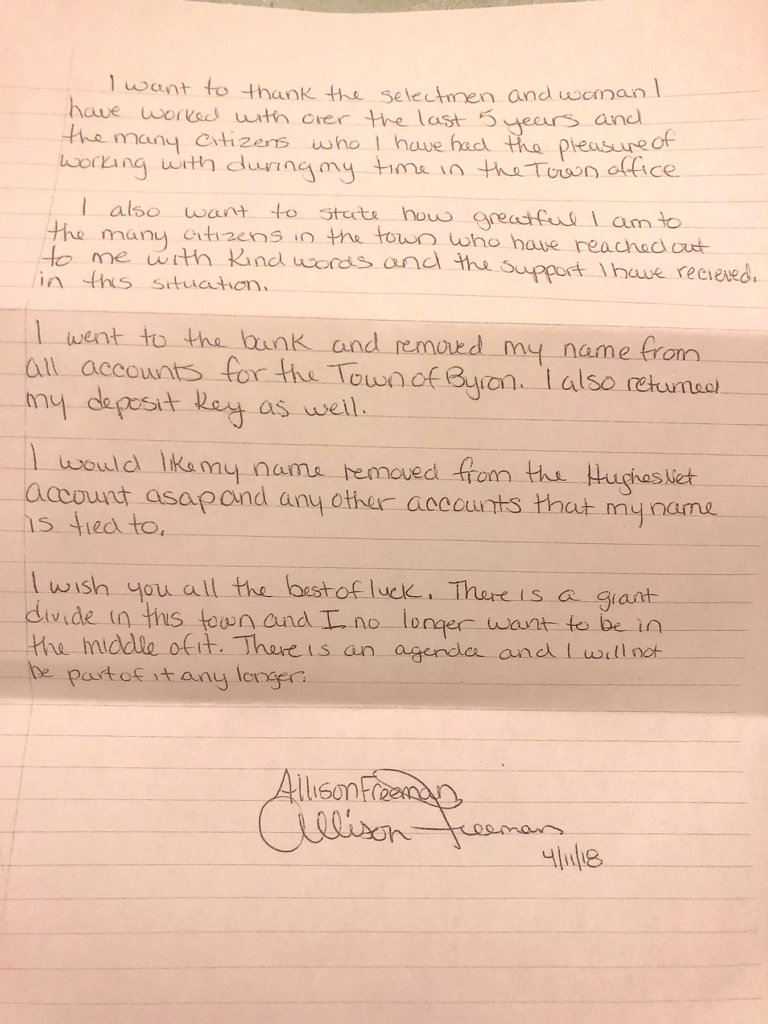 I want to thank the selectmen and woman I
have worked with over the last 5 years and
the many citizens who I have had the pleasure of
working with during my time in the Town office
I also want to state how greatful I am to
the many citizens in the town who have reached out
to me with kind words and the support I have recieved.
in this situation.
I went to the bank and removed my name from
all accounts for the Town of Byron. I also returned
my deposit key as well.
I would like my name removed from the HughesNet
account asap and any other accounts that my name
is tied to.
I wish you all the best of luck. There is a giant
divide in this town and I no longer want to be in
the middle of it. There is an agenda and I will not
be part of it any longer.
Allison Freeman
Allison Freeman
4/11/18